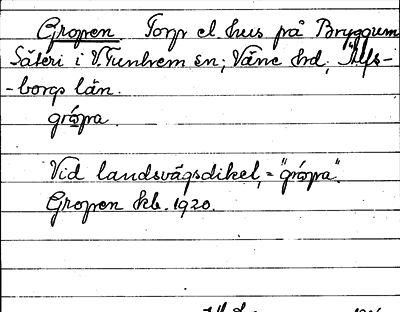 Gropen Torp el. hus på Bryggum
Säteri i V. Tunhem sn; Väne hd, Älfs-
-borgs län.
grópa.
Vid landsvägsdiket, = "grópa".
Gropen kb. 1920.